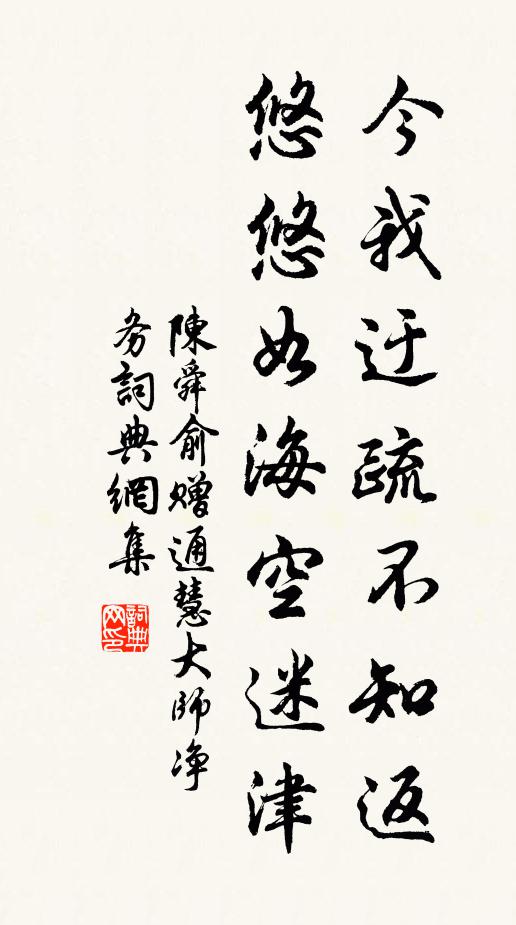 今我迂疏不知返
悠悠如海空迷津
陳舜俞贈通慧大師净
务詞典網集
詞典网印